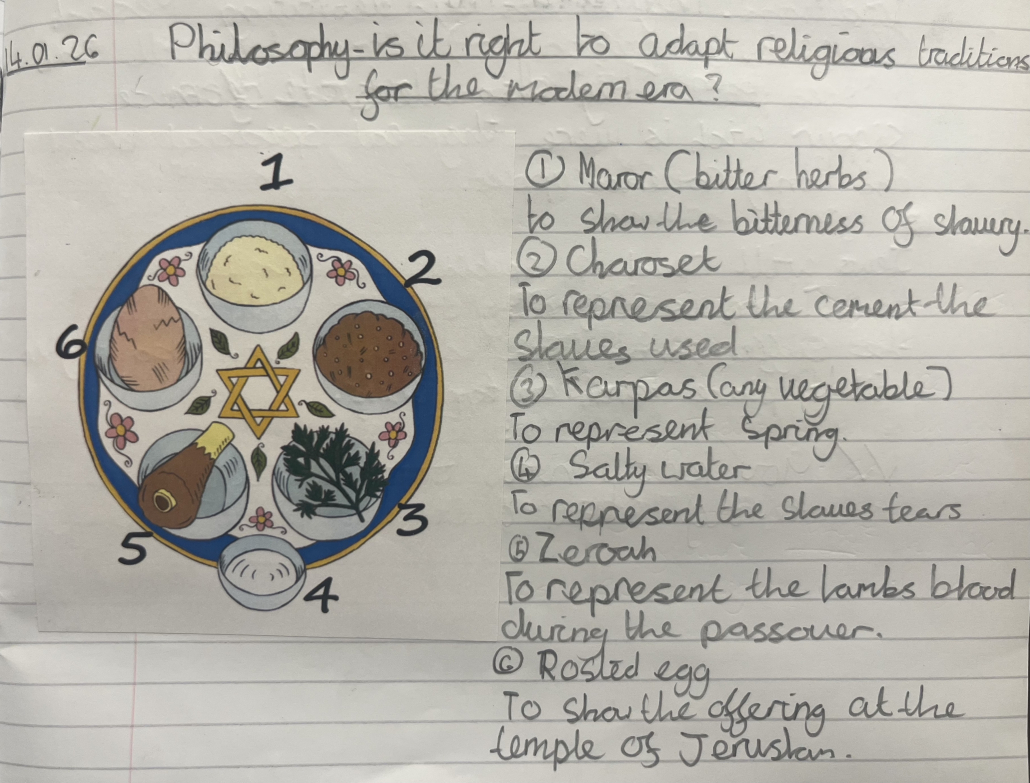 14.01.26 Philosophy-is it right to adapt religious traditions
for the modern era?
1
2
3
4
5
6
① Maror (bitter herbs)
to show the bitterness of slavery.
② Charoset
To represent the cement the
slaves used
③ Karpas (any vegetable)
To represent Spring.
④ Salty water
To represent the slaves tears
⑤ Zeroah
To represent the lambs blood
during the passover.
⑥ Rosted egg
To show the offering at the
temple of Jeruslam.